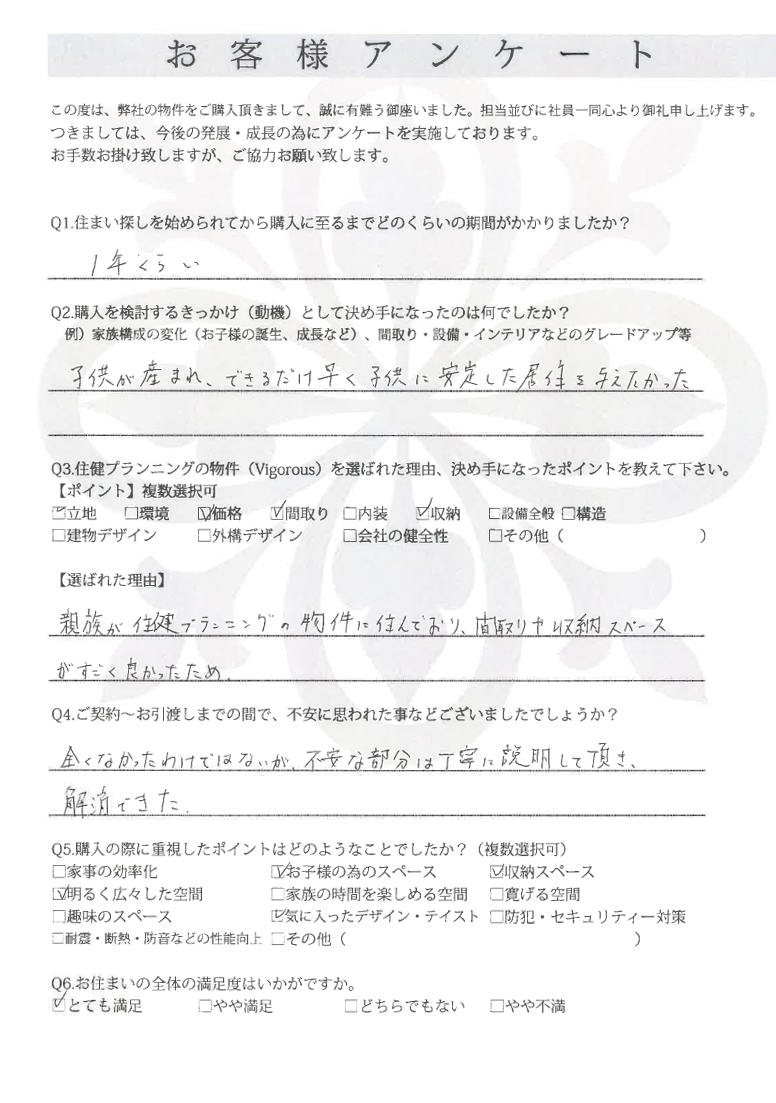 お客様アンケート
この度は、弊社の物件をご購入頂きまして、誠に有難う御座いました。担当並びに社員一同心より御礼申し上げます。
つきましては、今後の発展・成長の為にアンケートを実施しております。
お手数お掛け致しますが、ご協力お願い致します。
Q1.住まい探しを始められてから購入に至るまでどのくらいの期間がかかりましたか？
1年くらい
Q2.購入を検討するきっかけ（動機）として決め手になったのは何でしたか？
例）家族構成の変化（お子様の誕生、成長など）、間取り・設備・インテリアなどのグレードアップ等
子供が産まれ、できるだけ早く子供に安定した居住を与えたかった
Q3.住健プランニングの物件（Vigorous）を選ばれた理由、決め手になったポイントを教えて下さい。
【ポイント】複数選択可
☑立地 □環境 ☑価格 ☑間取り □内装 ☑収納 □設備全般 □構造
□建物デザイン □外構デザイン □会社の健全性 □その他（ ）
【選ばれた理由】
親族が住健プランニングの物件に住んでおり、間取りや収納スペース
がすごく良かったため。
Q4.ご契約～お引渡しまでの間で、不安に思われた事などございましたでしょうか？
全くなかったわけではないが、不安な部分は丁寧に説明して頂き、
解消できた。
Q5.購入の際に重視したポイントはどのようなことでしたか？（複数選択可）
□家事の効率化 ☑お子様の為のスペース ☑収納スペース
☑明るく広々した空間 □家族の時間を楽しめる空間 □寛げる空間
□趣味のスペース ☑気に入ったデザイン・テイスト □防犯・セキュリティー対策
□耐震・断熱・防音などの性能向上 □その他（ ）
Q6.お住まいの全体の満足度はいかがですか。
☑とても満足 □やや満足 □どちらでもない □やや不満